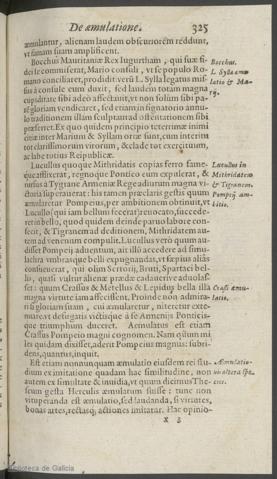 De æmulatione. 325
æmulantur, alienam laudem obscuriorem reddunt,
vt famam suam amplificent.
Bocchus Mauritaniæ Rex Iugurtham, qui suæ fi- Bocchus.
dei se commiserat, Mario consuli, vt se populo Ro- L. Sylla æmu
mano conciliaret, prodidit: verò L. Sylla legatus mis- latio & Ma-
sus à consule eum duxit, sed laudem totam magna rij.
cupiditate sibi adeo affectauit, vt non solùm sibi pa-
rem gloriam vendicaret, sed etiam in signatorio annu-
lo traditionem illam sculptam ad ostentationem sibi
præferret. Ex quo quidem principio teterrimæ inimi
citiæ inter Marium & Syllam ortæ sunt, cum interim
tot clarissimorum virorum, & clade tot exercituum,
ac labe totius Reipublicæ.
Lucullus quoque Mithridatis copias ferro fame- Lucullus in
que afflixerat, regnoque Pontico eum expulerat, & Mithridatem
rursus à Tygrane Armeniæ Rege adiutum magna vi- & Tigranem.
ctoria superauerat: his tamen præclarè gestis quum Pompeij am-
æmularetur Pompeius, per ambitionem obtinuit, vt bitio.
Lucullo (qui iam bellum fecerat) reuocato, succede-
ret in bello, quod quidem deinde paruo labore con-
fecit, & Tigranem ad deditionem, Mithridatem au-
tem ad venenum compulit. Lucullus verò quum au-
disset Pompeij aduentum, ait illi accedere ad simu-
lachra vmbrasque belli expugnandas, vt sæpius aliàs
consueuerat, qui olim Sertorij, Bruti, Spartaci bel-
lis, quasi vultur alienæ prædæ cadauerive aduolas-
set: quum Crassus & Metellus & Lepidus bella illa Crassi æmu-
magna virtute iam affecissent. Proinde non admira- latio.
ris gloriam suam, cui æmularetur, niteretur exte-
nuare vt defugatis victisque à se Armenijs Ponticis-
que triumphum duceret. Aemulatus est etiam
Crassus Pompeio magni cognomen. Nam quum mi
les quidam dixisset, aderit Pompeius magnus: subri-
dens, quantus, inquit.
Est etiam nonnunquam æmulatio eiusdem rei stu- Æmulatio-
dium ex imitatione quadam hac similitudine, non nis altera spe-
autem ex simultate & inuidia, vt quum dicimus The- cies.
seum gesta Herculis æmulatum fuisse: tunc non
vituperanda est æmulatio, sed laudanda, si virtutes,
bonas artes, rectasque actiones imitatur. Hac opinio-
X 3
Biblioteca de Galicia